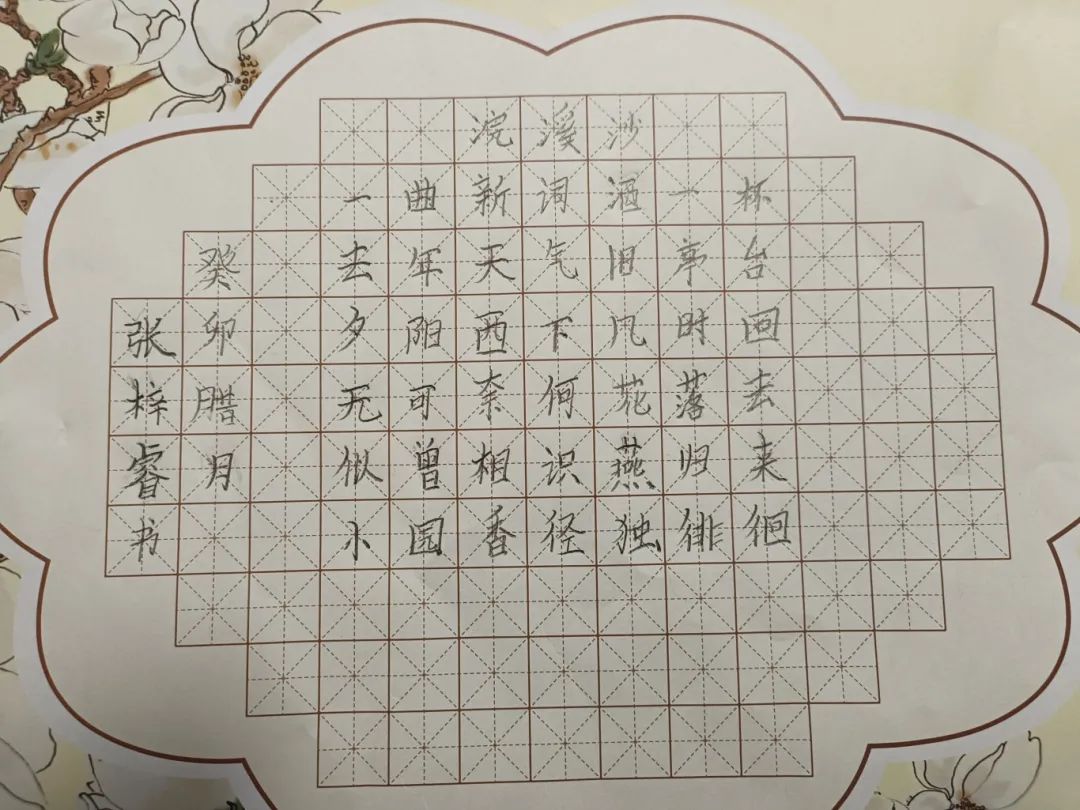 浣溪沙
一曲新词酒一杯
去年天气旧亭台
夕阳西下几时回
无可奈何花落去
似曾相识燕归来
小园香径独徘徊
癸卯腊月
张梓睿书